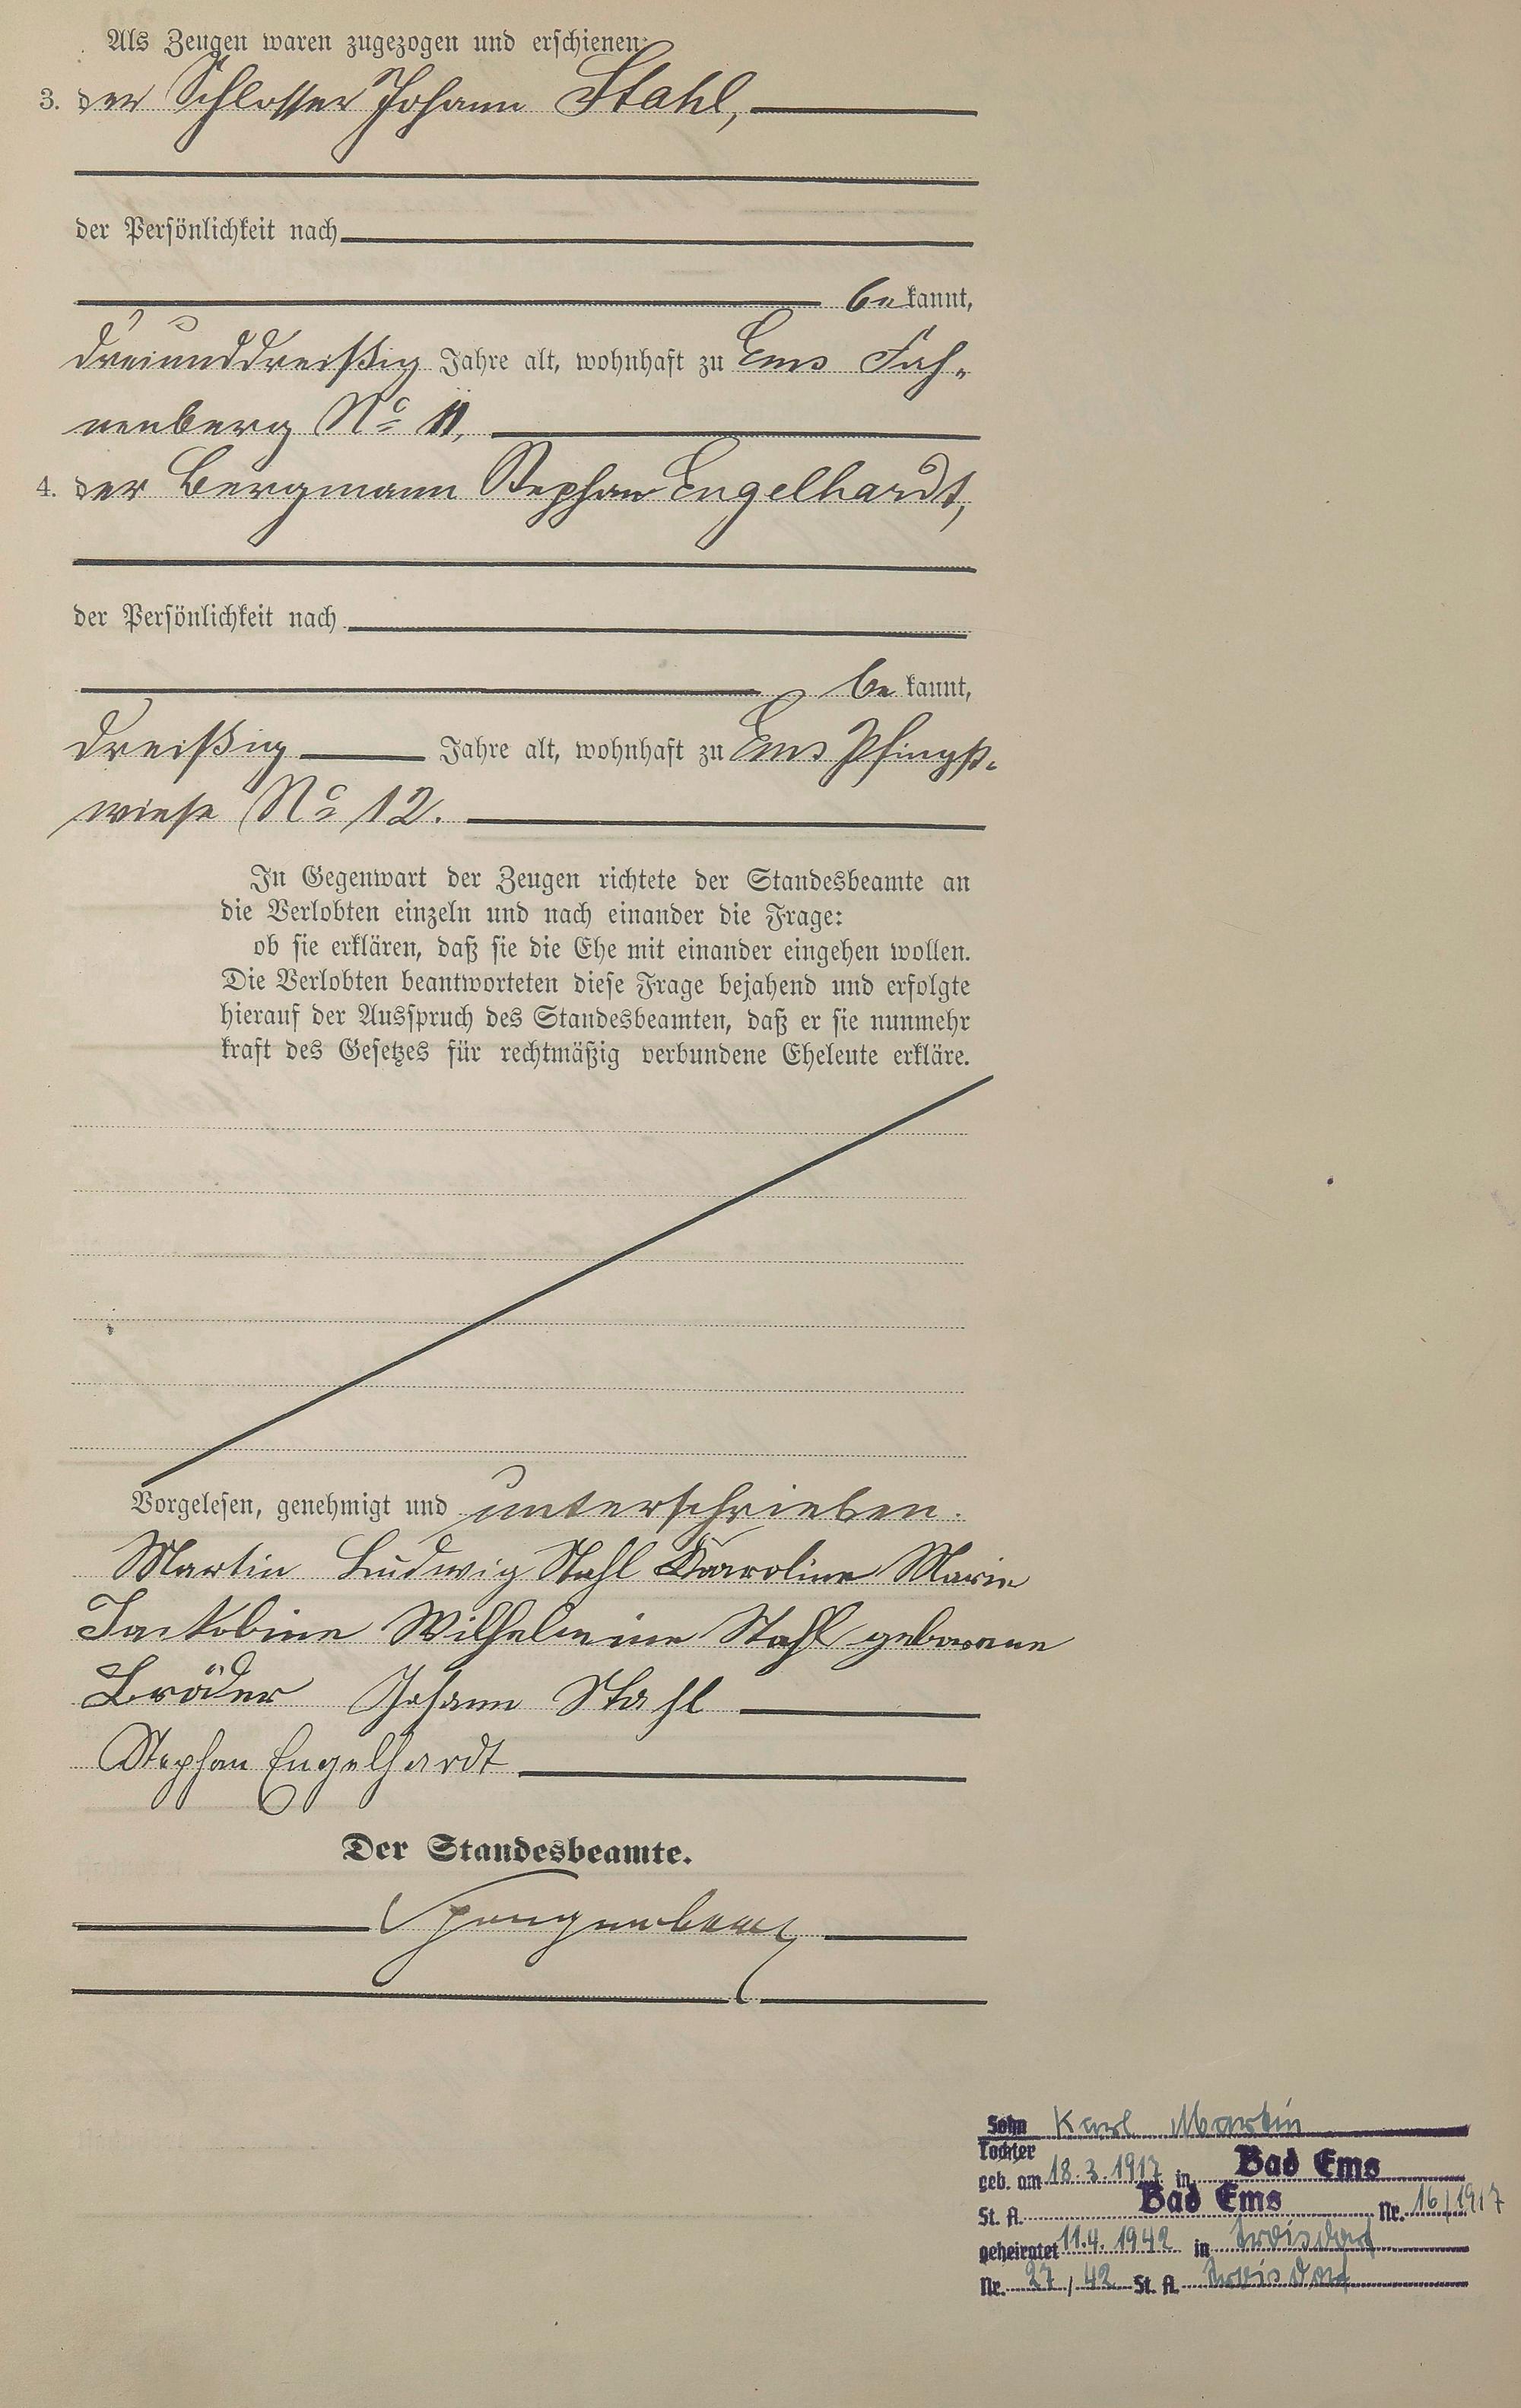 Als Zeugen waren zugezogen und erschienen:
3. der Schlosser Johann Stahl,
der Persönlichkeit nach
bekannt,
dreiunddreißig Jahre alt, wohnhaft zu Ems Fah-
nenberg No 11,
4. der Bergmann Stephan Engelhardt,
der Persönlichkeit nach
bekannt,
dreißig Jahre alt, wohnhaft zu Ems Pfingst-
wiese No 12.
In Gegenwart der Zeugen richtete der Standesbeamte an
die Verlobten einzeln und nach einander die Frage:
ob sie erklären, daß sie die Ehe mit einander eingehen wollen.
Die Verlobten beantworteten diese Frage bejahend und erfolgte
hierauf der Ausspruch des Standesbeamten, daß er sie nunmehr
kraft des Gesetzes für rechtmäßig verbundene Eheleute erkläre.
Vorgelesen, genehmigt und unterschrieben.
Martin Ludwig Stahl Karoline Marie
Jackobine Wilhelmine Stahl geborene
Bröder Johann Stahl
Stephan Engelhardt
Der Standesbeamte.
Spangenberg
Sohn Karl Martin
Tochter
geb. am 18.3.1917 in Bad Ems
St. A. Bad Ems Nr. 16/1917
geheiratet 11.4.1942 in Troisdorf
Nr. 27/42 St. A. Troisdorf